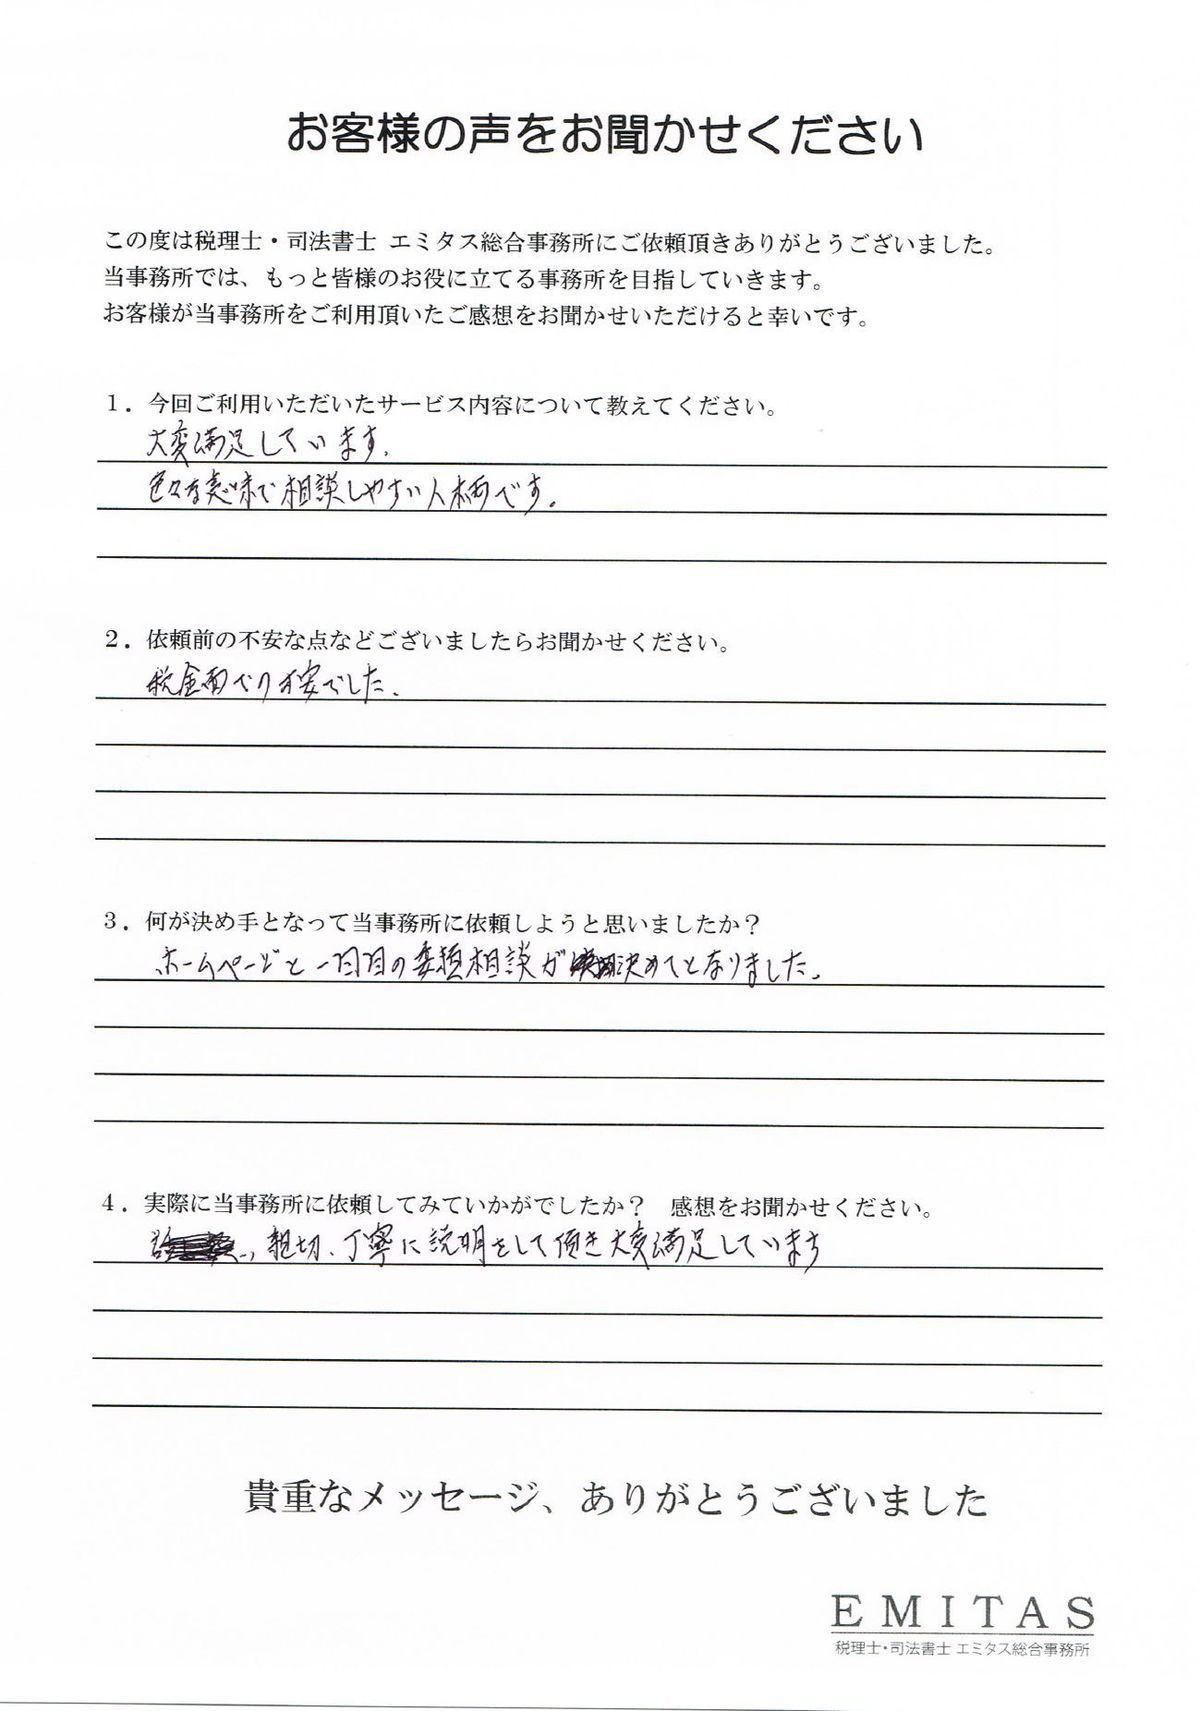 お客様の声をお聞かせください
この度は税理士・司法書士 エミタス総合事務所にご依頼頂きありがとうございました。
当事務所では、もっと皆様のお役に立てる事務所を目指していきます。
お客様が当事務所をご利用頂いたご感想をお聞かせいただけると幸いです。
１．今回ご利用いただいたサービス内容について教えてください。
大変満足しています.
色々な意味で相談しやすい人柄です。
２．依頼前の不安な点などございましたらお聞かせください。
税金面でり不安でした.
３．何が決め手となって当事務所に依頼しようと思いましたか？
ホームページと一回目の無料相談が決めてとなりました.
４．実際に当事務所に依頼してみていかがでしたか？ 感想をお聞かせください。
親切、丁寧に説明をして頂き大変満足しています
貴重なメッセージ、ありがとうございました
EMITAS
税理士・司法書士 エミタス総合事務所